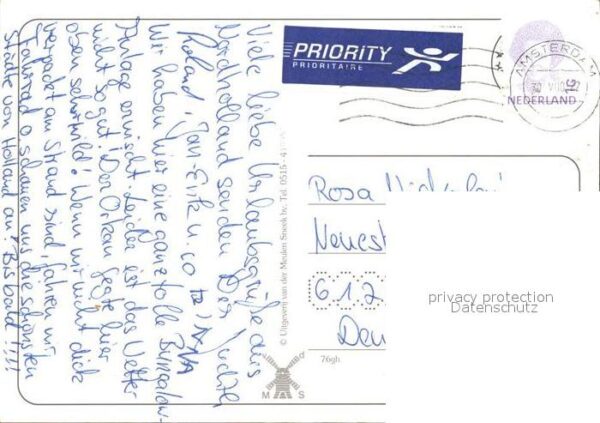 Viele liebe Urlaubsgrüße aus
Nordholland senden Der
Roland, Jan-Erik u.
Wir haben hier eine ganz tolle Bungalow-
Anlage erwischt. Leider ist das Wetter
nicht so gut! Der Orkan fegte hier
oben sehr wild! Wenn wir nicht dick
verpackt am Strand sind, fahren wir
Fahrrad o. schauen uns die schönsten
Städte von Holland an! Bis bald!!!!
PRIORITY
PRIORITAIRE
AMSTERDAM
NEDERLAND
© Uitgeverij van der Meulen Sneek bv. Tel. 0515 - 4
Rosa
Neuest
612
Deu
privacy protection
Datenschutz
76gh
M S